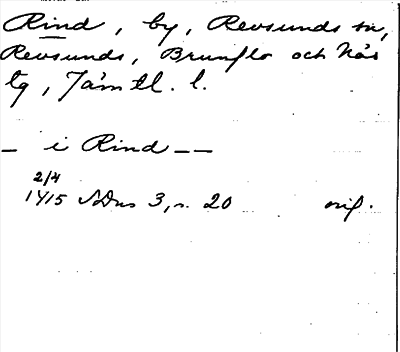 Rind, by, Revsunds sn,
Revsunds, Brunflo och Näs
tg, Jämtl. l.
— i Rind — —
2/4
1415 SDns 3, s. 20 orig.